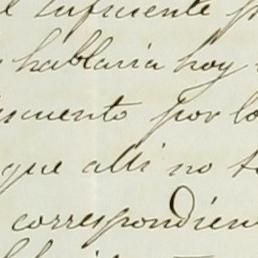 l suficiente p
hablaria hoy
scuento por lo
que alli no t
correspondien